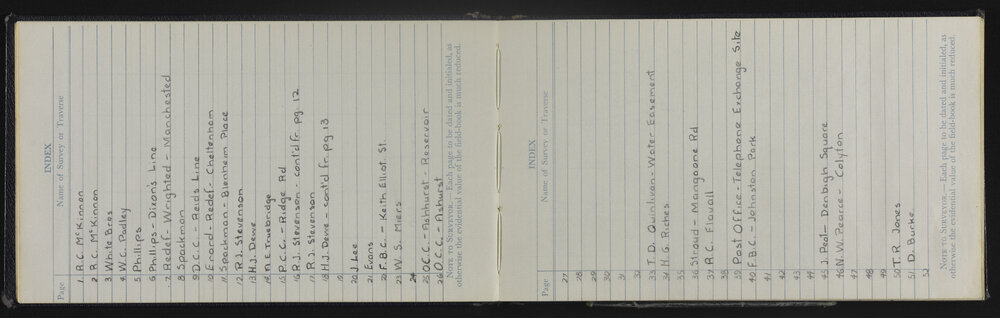 INDEX
Page Name of Survey or Traverse
1. R.C. McKinnon
2. R.C. McKinnon
3. White Bros
4. W.C. Padley
5. Phillips
6 Phillips - Dixon's Line
7. Redef - Wrighted - Manchested
8 Spackman
9 D.C.C. - Reids Line
10 Enond - Redef - Cheltenham
11 Spackman - Blenheim Place
12. R.J. Stevenson
13. H.J. Dewe
14. N.E. Truebridge
15. P.C.C. - Ridge Rd
16 R.J. Stevenson - cont'd fr. pg 12
17. R.J. Stevenson
18 H.J. Dewe - cont'd fr. pg 13
19
20 J. Lee
21 Evans
22 F.B.C. - Keith Elliot St.
23 W.S. Miers
24
25 O.C.C. - Ashhurst - Reservoir
26 O.C.C. - Ashurst
NOTE TO SURVEYOR.—Each page to be dated and initialed, as
otherwise the evidential value of the field-book is much reduced.
INDEX
Page Name of Survey or Traverse
27
28
29
30
31
32
33 T.D. Quinlivan - Water Easement
34 H.G. Riches
35
36 Stroud - Mangaone Rd
37 R.C. Flavall
38
39 Post Office - Telephone Exchange Site
40 F.B.C. - Johnston Park
41
42
43
44
45 J. Peal - Denbigh Square
46 N.W. Pearce - Colyton
47
48
49
50 T.R. Jones
51. D. Burke.
52
NOTE TO SURVEYOR.—Each page to be dated and initialed, as
otherwise the evidential value of the field-book is much reduced.